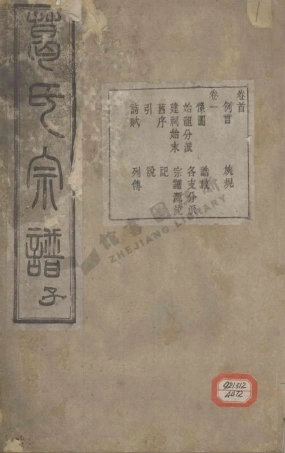 葛氏宗譜 子
卷首
例言 族規
卷一
像圖 誥敕
始祖分派 各支分派
建祠始末 宗譜源流
舊序 記
引 說
詩賦 列傳
ZHEJIANG LIBRARY
921312
4472